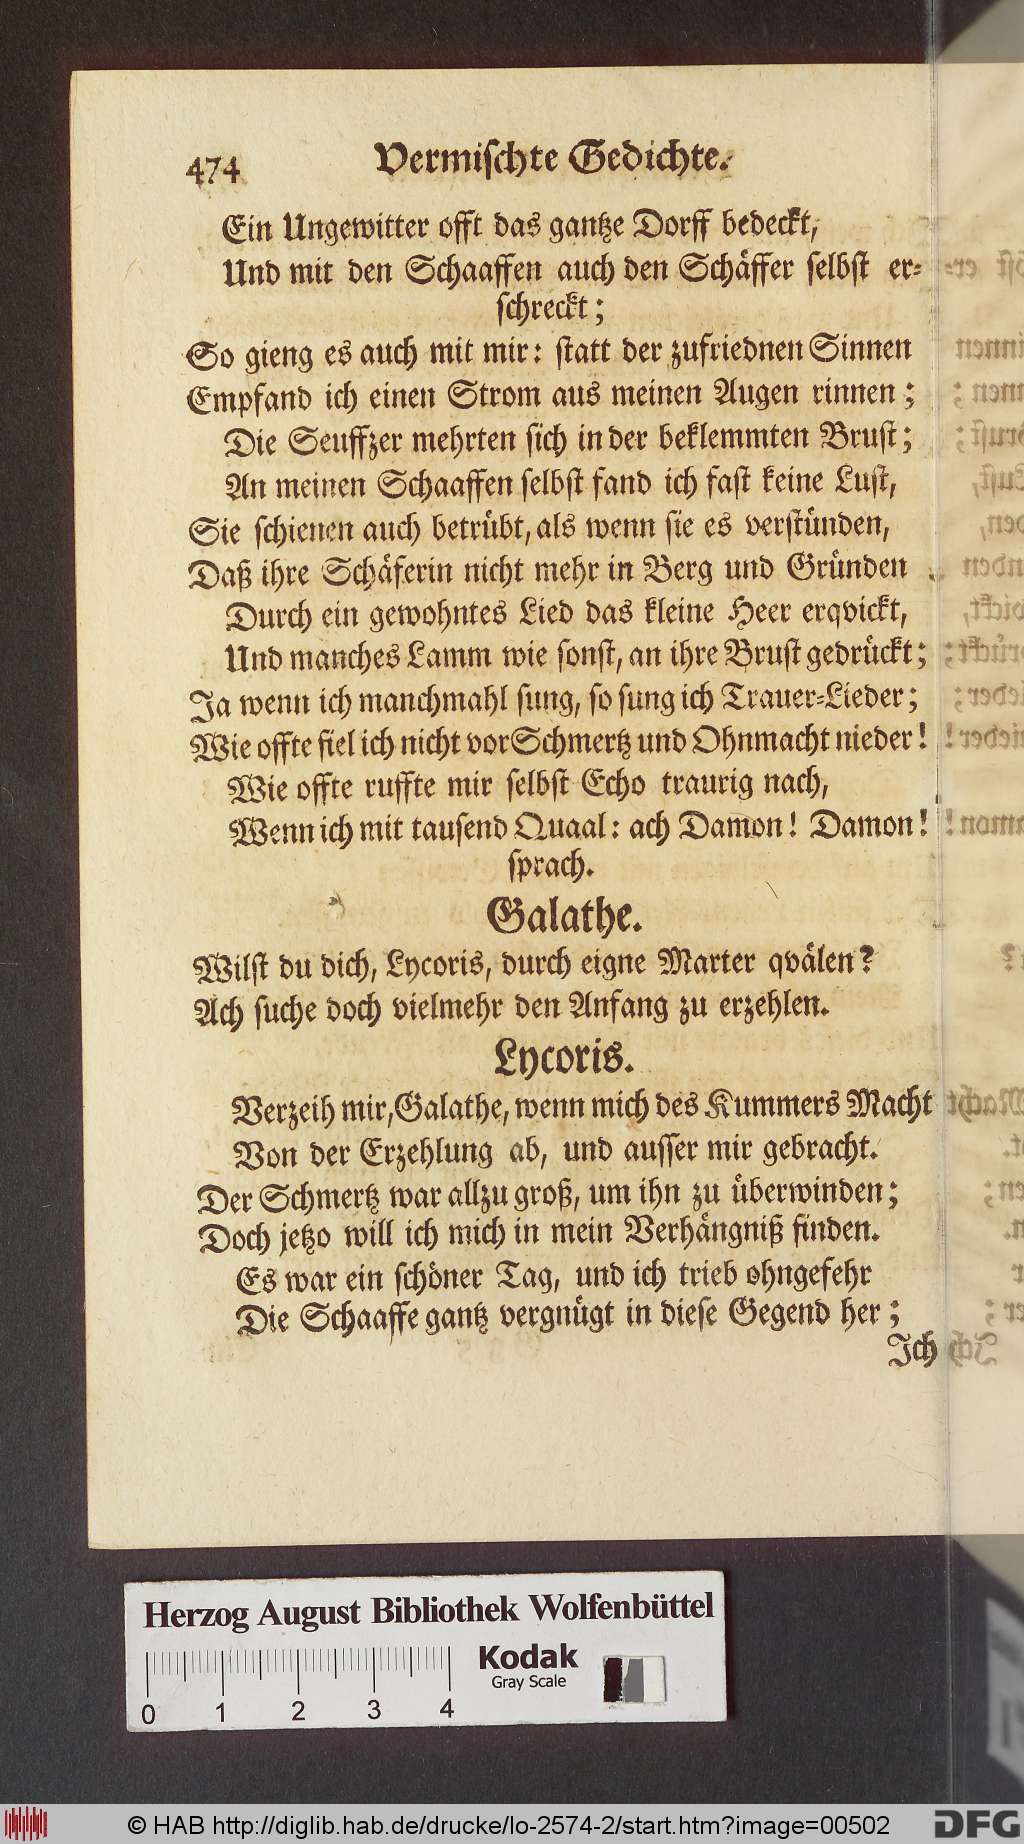 474 Vermischte Gedichte.
Ein Ungewitter offt das gantze Dorff bedeckt,
Und mit den Schaaffen auch den Schäffer selbst er-
schreckt;
So gieng es auch mit mir: statt der zufriednen Sinnen
Empfand ich einen Strom aus meinen Augen rinnen;
Die Seuffzer mehrten sich in der beklemmten Brust;
An meinen Schaaffen selbst fand ich fast keine Lust,
Sie schienen auch betrübt, als wenn sie es verstünden,
Daß ihre Schäferin nicht mehr in Berg und Gründen
Durch ein gewohntes Lied das kleine Heer erqvickt,
Und manches Lamm wie sonst, an ihre Brust gedrückt;
Ja wenn ich manchmahl sung, so sung ich Trauer-Lieder;
Wie offte fiel ich nicht vor Schmertz und Ohnmacht nieder!
Wie offte ruffte mir selbst Echo traurig nach,
Wenn ich mit tausend Quaal: ach Damon! Damon!
sprach.
Galathe.
Wilst du dich, Lycoris, durch eigne Marter qvälen?
Ach suche doch vielmehr den Anfang zu erzehlen.
Lycoris.
Verzeih mir, Galathe, wenn mich des Kummers Macht
Von der Erzehlung ab, und ausser mir gebracht.
Der Schmertz war allzu groß, um ihn zu überwinden;
Doch jetzo will ich mich in mein Verhängniß finden.
Es war ein schöner Tag, und ich trieb ohngefehr
Die Schaaffe gantz vergnügt in diese Gegend her;
Ich
Herzog August Bibliothek Wolfenbüttel
Kodak
Gray Scale
0 1 2 3 4
© HAB http://diglib.hab.de/drucke/lo-2574-2/start.htm?image=00502
DFG